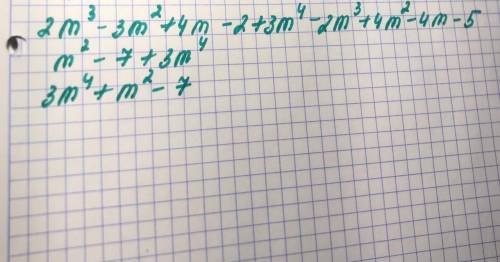 2m³ - 3m² + 4m - 2 + 3m⁴ - 2m³ + 4m² - 4m - 5
m² - 7 + 3m⁴
3m⁴ + m² - 7